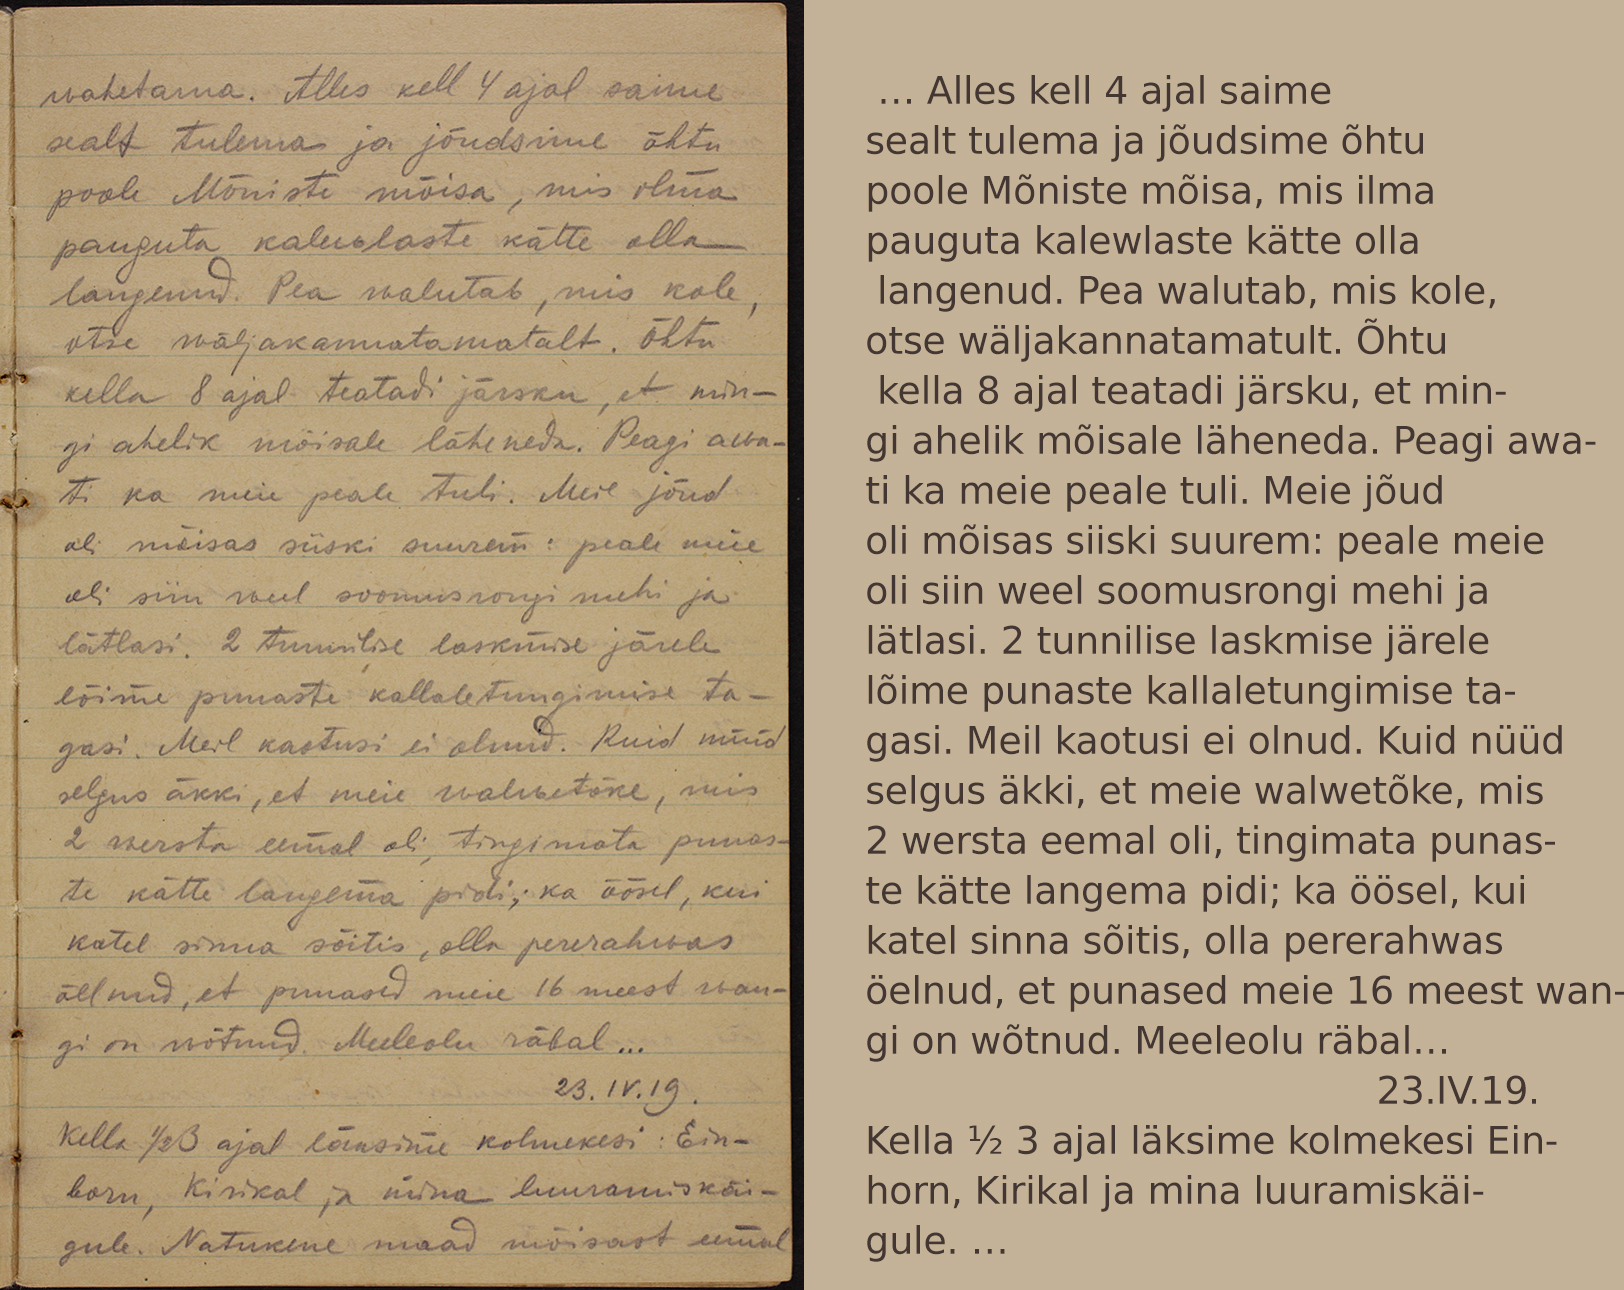 wahetama. Alles kell 4 ajal saime
sealt tulema ja jõudsime õhtu
poole Mõniste mõisa, mis ilma
pauguta kalewlaste kätte olla
langenud. Pea walutab, mis kole,
otse wäljakannatamatalt. Õhtu
kella 8 ajal teatadi järsku, et min-
gi ahelik mõisale läheneda. Peagi awa-
ti ka meie peale tuli. Meil jõud
oli mõisas siiski suurem: peale meie
oli siin weel soomusrongi mehi ja
lätlasi. 2 tunnilise laskmise järele
lõime punaste kallaletungimise ta-
gasi. Meil kaotusi ei olnud. Kuid nüüd
selgus äkki, et meie walwetõke, mis
2 wersta eemal oli, tingimata punas-
te kätte langema pidi; ka öösel, kui
katel sinna sõitis, olla pererahwas
öelnud, et punased meie 16 meest wan-
gi on wõtnud. Meeleolu räbal...
23.IV.19.
Kella ½3 ajal läksime kolmekesi: Ein-
horn, Kirikal ja mina luuramiskäi-
gule. Natukene maad mõisast eemal
... Alles kell 4 ajal saime
sealt tulema ja jõudsime õhtu
poole Mõniste mõisa, mis ilma
pauguta kalewlaste kätte olla
langenud. Pea walutab, mis kole,
otse wäljakannatamatult. Õhtu
kella 8 ajal teatadi järsku, et min-
gi ahelik mõisale läheneda. Peagi awa-
ti ka meie peale tuli. Meie jõud
oli mõisas siiski suurem: peale meie
oli siin weel soomusrongi mehi ja
lätlasi. 2 tunnilise laskmise järele
lõime punaste kallaletungimise ta-
gasi. Meil kaotusi ei olnud. Kuid nüüd
selgus äkki, et meie walwetõke, mis
2 wersta eemal oli, tingimata punas-
te kätte langema pidi; ka öösel, kui
katel sinna sõitis, olla pererahwas
öelnud, et punased meie 16 meest wan-
gi on wõtnud. Meeleolu räbal...
23.IV.19.
Kella ½ 3 ajal läksime kolmekesi Ein-
horn, Kirikal ja mina luuramiskäi-
gule. ...